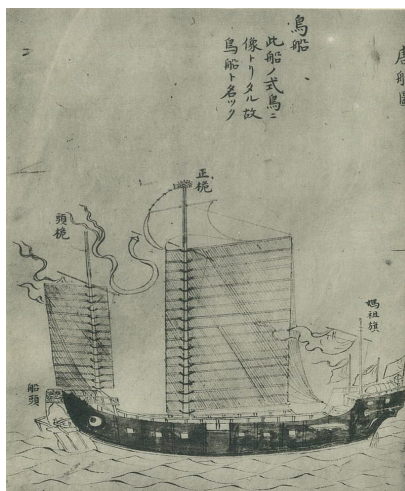 唐船圖
鳥船
此船ノ式鳥ニ
像トリタル故
鳥船ト名ック
正桅
頭桅
媽祖旗
船頭